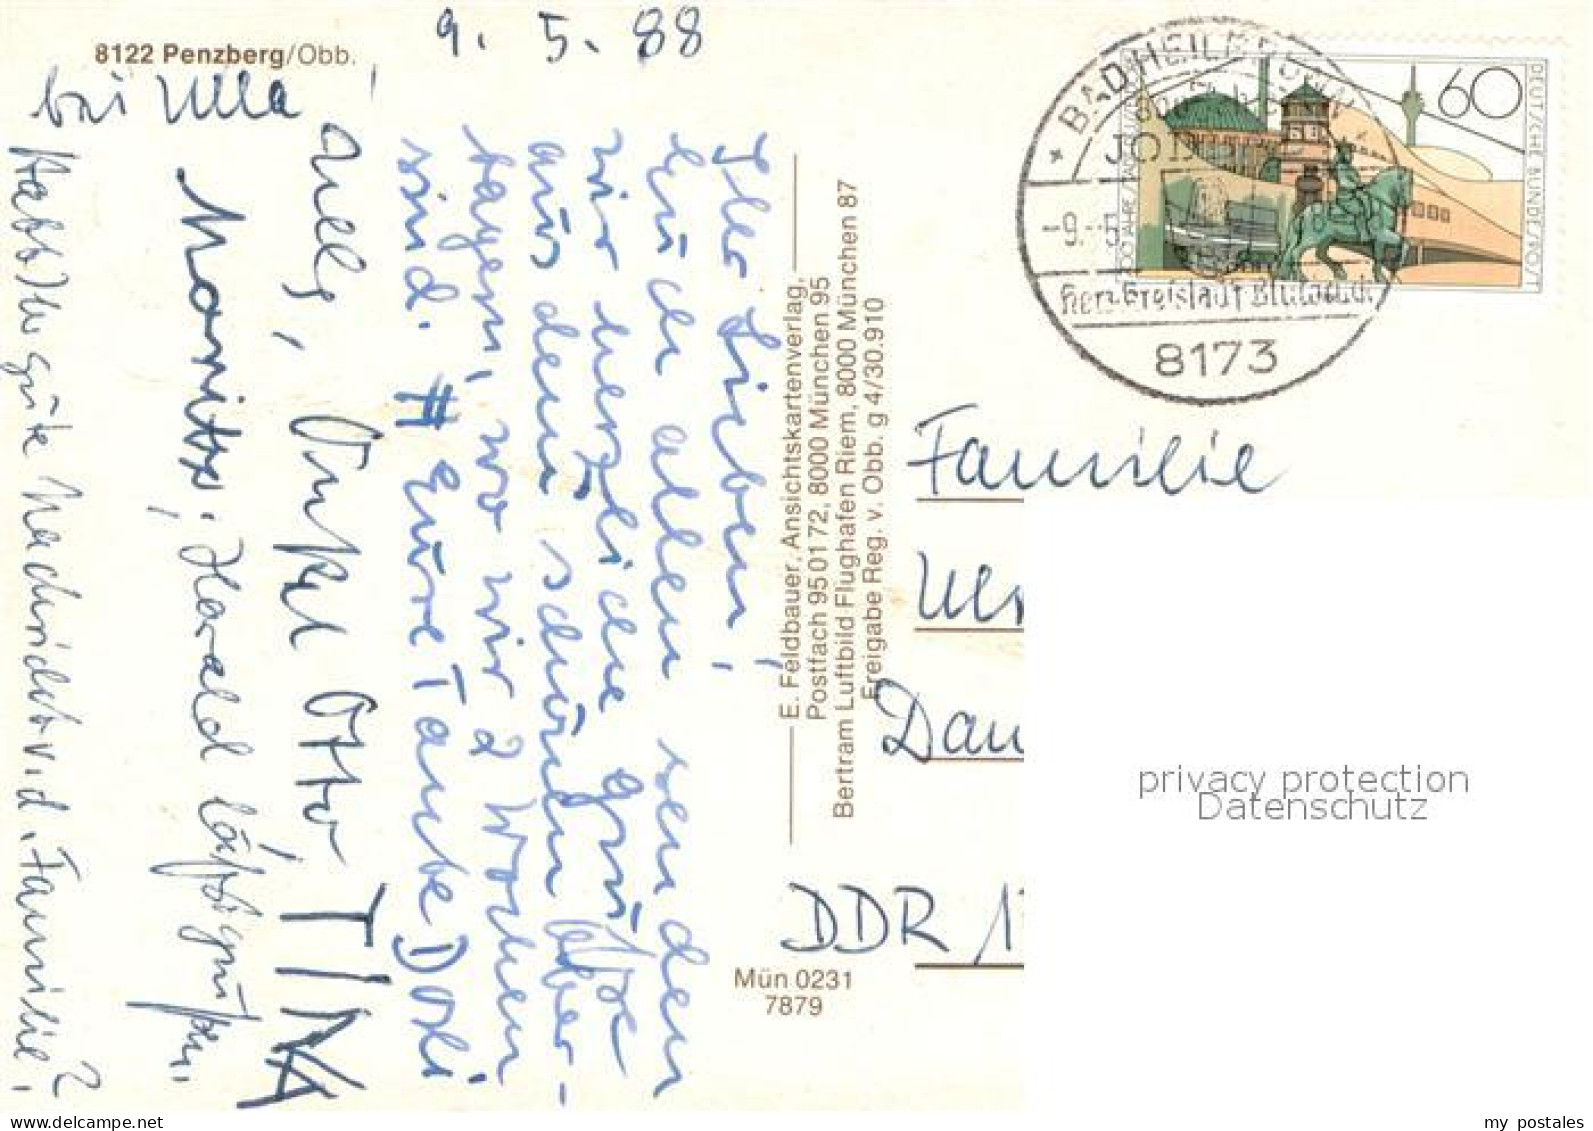 8122 Penzberg/Obb.
9. 5. 88
bei Ulla!
Ihr Lieben!
Euch allen senden
wir herzliche Grüße
aus dem schönen Ober-
bayern, wo wir 2 Wochen
sind. Eure Tante Dohi
Onkel Otto, TINA
Moritz, Harald läßt grüßen.
Habt Ihr gute Nachricht v. d. Familie?
E. Feldbauer, Ansichtskartenverlag,
Postfach 950172, 8000 München 95
Bertram Luftbild Flughafen Riem, 8000 München 87
Freigabe Reg. v. Obb. g 4/30.910
Mün 0231
7879
BAD HEILBRUNN
JOD
-9.-5.
Herz Kreislauf Blutdruck
8173
60
DEUTSCHE BUNDESPOST
Familie
Dau
DDR 1
privacy protection
Datenschutz
oldthing.net
my postales